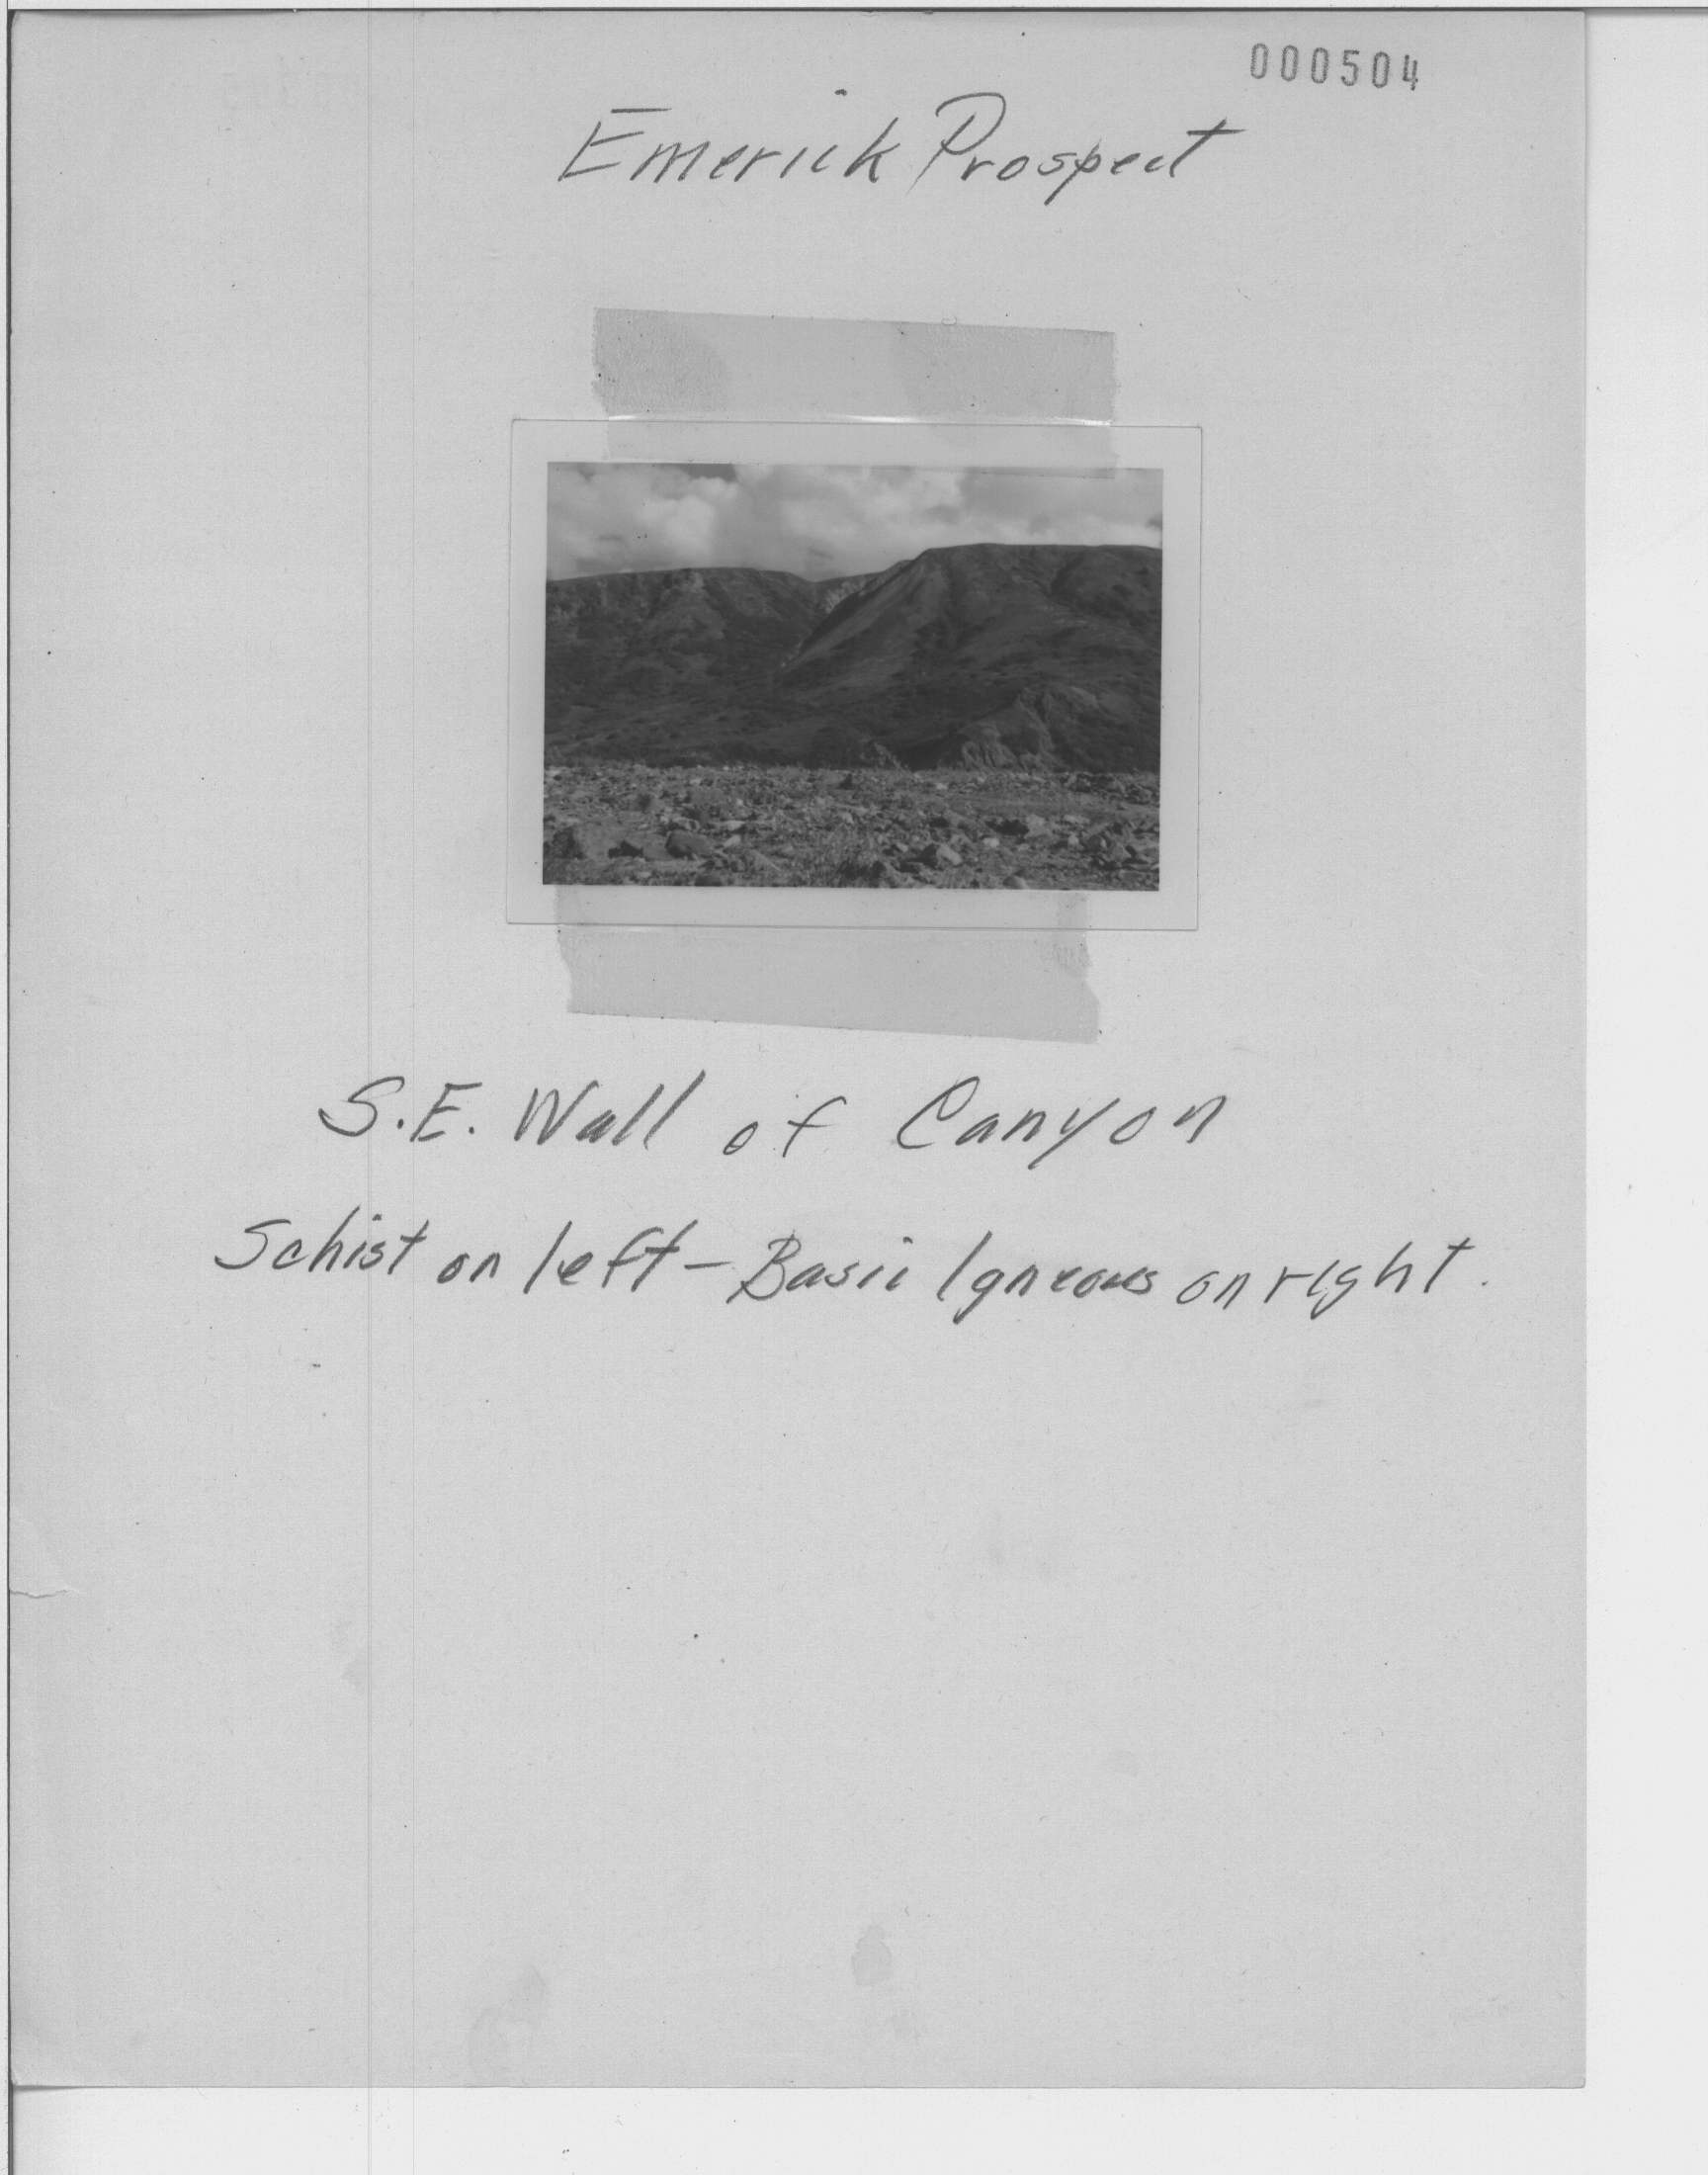 000504
Emerick Prospect
S.E. Wall of Canyon
Schist on left - Basic Igneous on right.